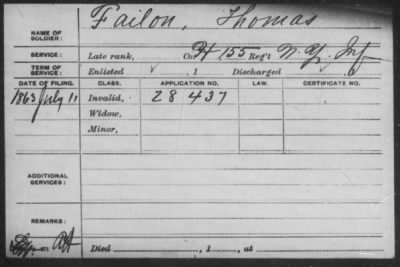 Failon, Thomas
NAME OF SOLDIER:
SERVICE: Late rank, Co. H 155 Reg't N.Y. Inf
TERM OF SERVICE: Enlisted , 1 Discharged
DATE OF FILING. CLASS. APPLICATION NO. LAW. CERTIFICATE NO.
1863 July 11 Invalid, 28 437
Widow,
Minor,
ADDITIONAL SERVICES:
REMARKS:
Died , 1 , at